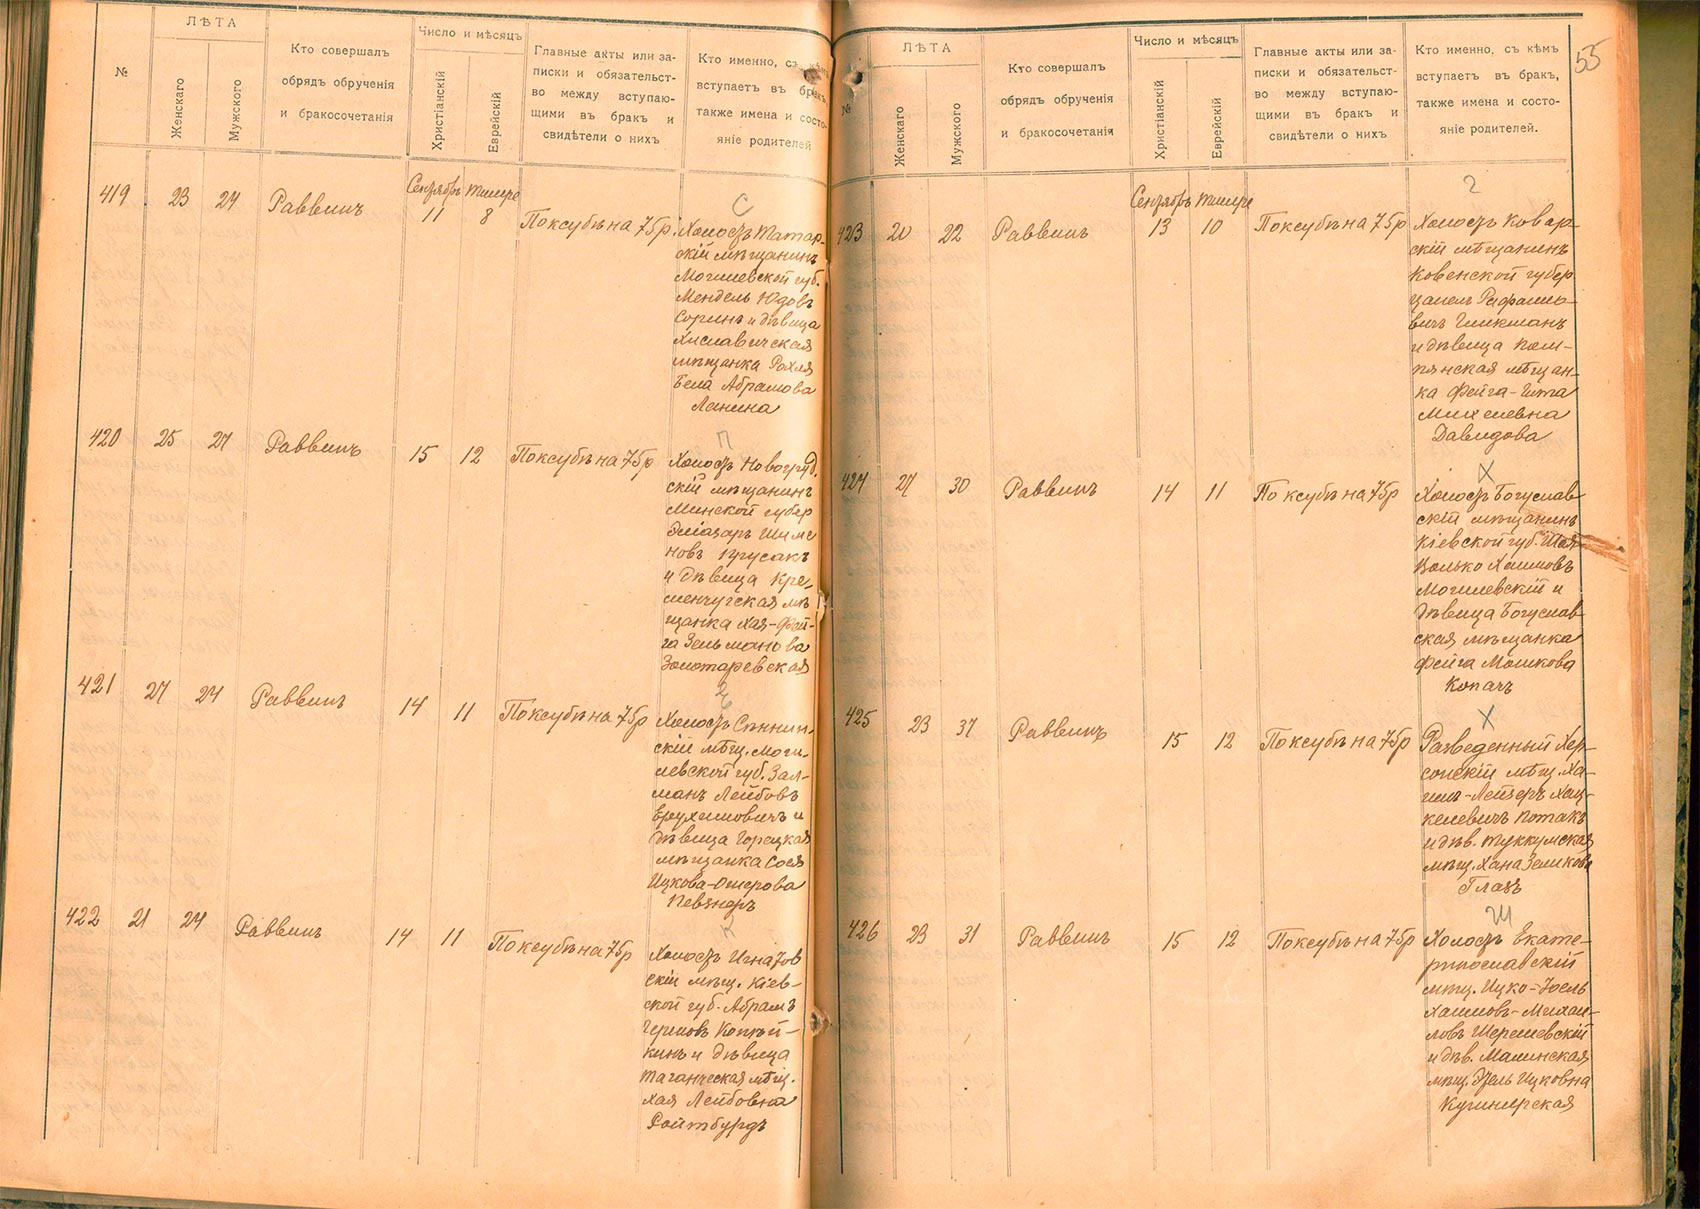 №
ЛѢТА
Женскаго
Мужского
Кто совершалъ
обрядъ обрученія
и бракосочетанія
Число и мѣсяцъ
Христіанскій
Еврейскій
Главные акты или за-
писки и обязательст-
во между вступаю-
щими въ бракъ и
свидѣтели о нихъ
Кто именно, съ кѣмъ
вступаетъ въ бракъ,
также имена и состо-
яніе родителей
419 23 24 Раввинъ Сентябрь 11 Тишре 8 По ксубѣ на 75р.
С
Холостъ Татар-
скій мѣщанинъ
Могилевской губ.
Мендель Юдовъ
Соринъ и дѣвица
Хиславичская
мѣщанка Рахля
Бела Абрамова
Ланина
420 25 27 Раввинъ 15 12 По ксубѣ на 75р
П
Холостъ Новогруд.
скій мѣщанинъ
Минской губер
Эліазаръ Шиме
новъ Прусакъ
и дѣвица Кре-
менчугская мѣ
щанка Хая-Фей-
га Зельманова
Золотаревская
421 27 24 Раввинъ 14 11 По ксубѣ на 75р
Холостъ Сѣннин-
скій мѣщ. Моги-
левской губ. Зал-
манъ Лейбовъ
Ерухимовичъ и
дѣвица Горецкая
мѣщанка Сося
Ицкова-Ошерова
Певзнеръ
422 21 24 Раввинъ 14 11 По ксубѣ на 75р
К
Холостъ Игнатов
скій мѣщ. Кіев-
ской губ. Абрамъ
Гершовъ Копѣй-
кинъ и дѣвица
Таганческая мѣщ.
Хая Лейбовна
Ройтбурдъ
55
№
ЛѢТА
Женскаго
Мужского
Кто совершалъ
обрядъ обрученія
и бракосочетанія
Число и мѣсяцъ
Христіанскій
Еврейскій
Главные акты или за-
писки и обязательст-
во между вступаю-
щими въ бракъ и
свидѣтели о нихъ
Кто именно, съ кѣмъ
вступаетъ въ бракъ,
также имена и состо-
яніе родителей.
423 20 22 Раввинъ Сентябрь 13 Тишре 10 По ксубѣ на 75р
Холостъ Ковар-
скій мѣщанинъ
Ковенской губер
Цалел Рафаило-
вичъ Гликманъ
и дѣвица Поли-
пянская мѣщан-
ка Фейга-Гита
Михелевна
Давидова
424 27 30 Раввинъ 14 11 По ксубѣ на 75р
Х
Холостъ Богуслав
скій мѣщанинъ
Кіевской губ. Шая-
Волько Хаимовъ
Могилевскій и
дѣвица Богуслав-
ская мѣщанка
Фейга Мошкова
Копачъ
425 23 37 Раввинъ 15 12 По ксубѣ на 75р
Х
Разведенный Хер-
сонскій мѣщ. Ха-
имъ-Лейзеръ Хац-
келевичъ Потакъ
и дѣв. Туккумская
мѣщ. Хана Зеликова
Глазъ
426 23 31 Раввинъ 15 12 По ксубѣ на 75р
Ш
Холостъ Екате-
ринославскій
мѣщ. Ицко-Іоель
Хаимовъ-Михай-
ловъ Шерешевскій
и дѣв. Малинская
мѣщ. Эзель Ицковна
Кушнярская